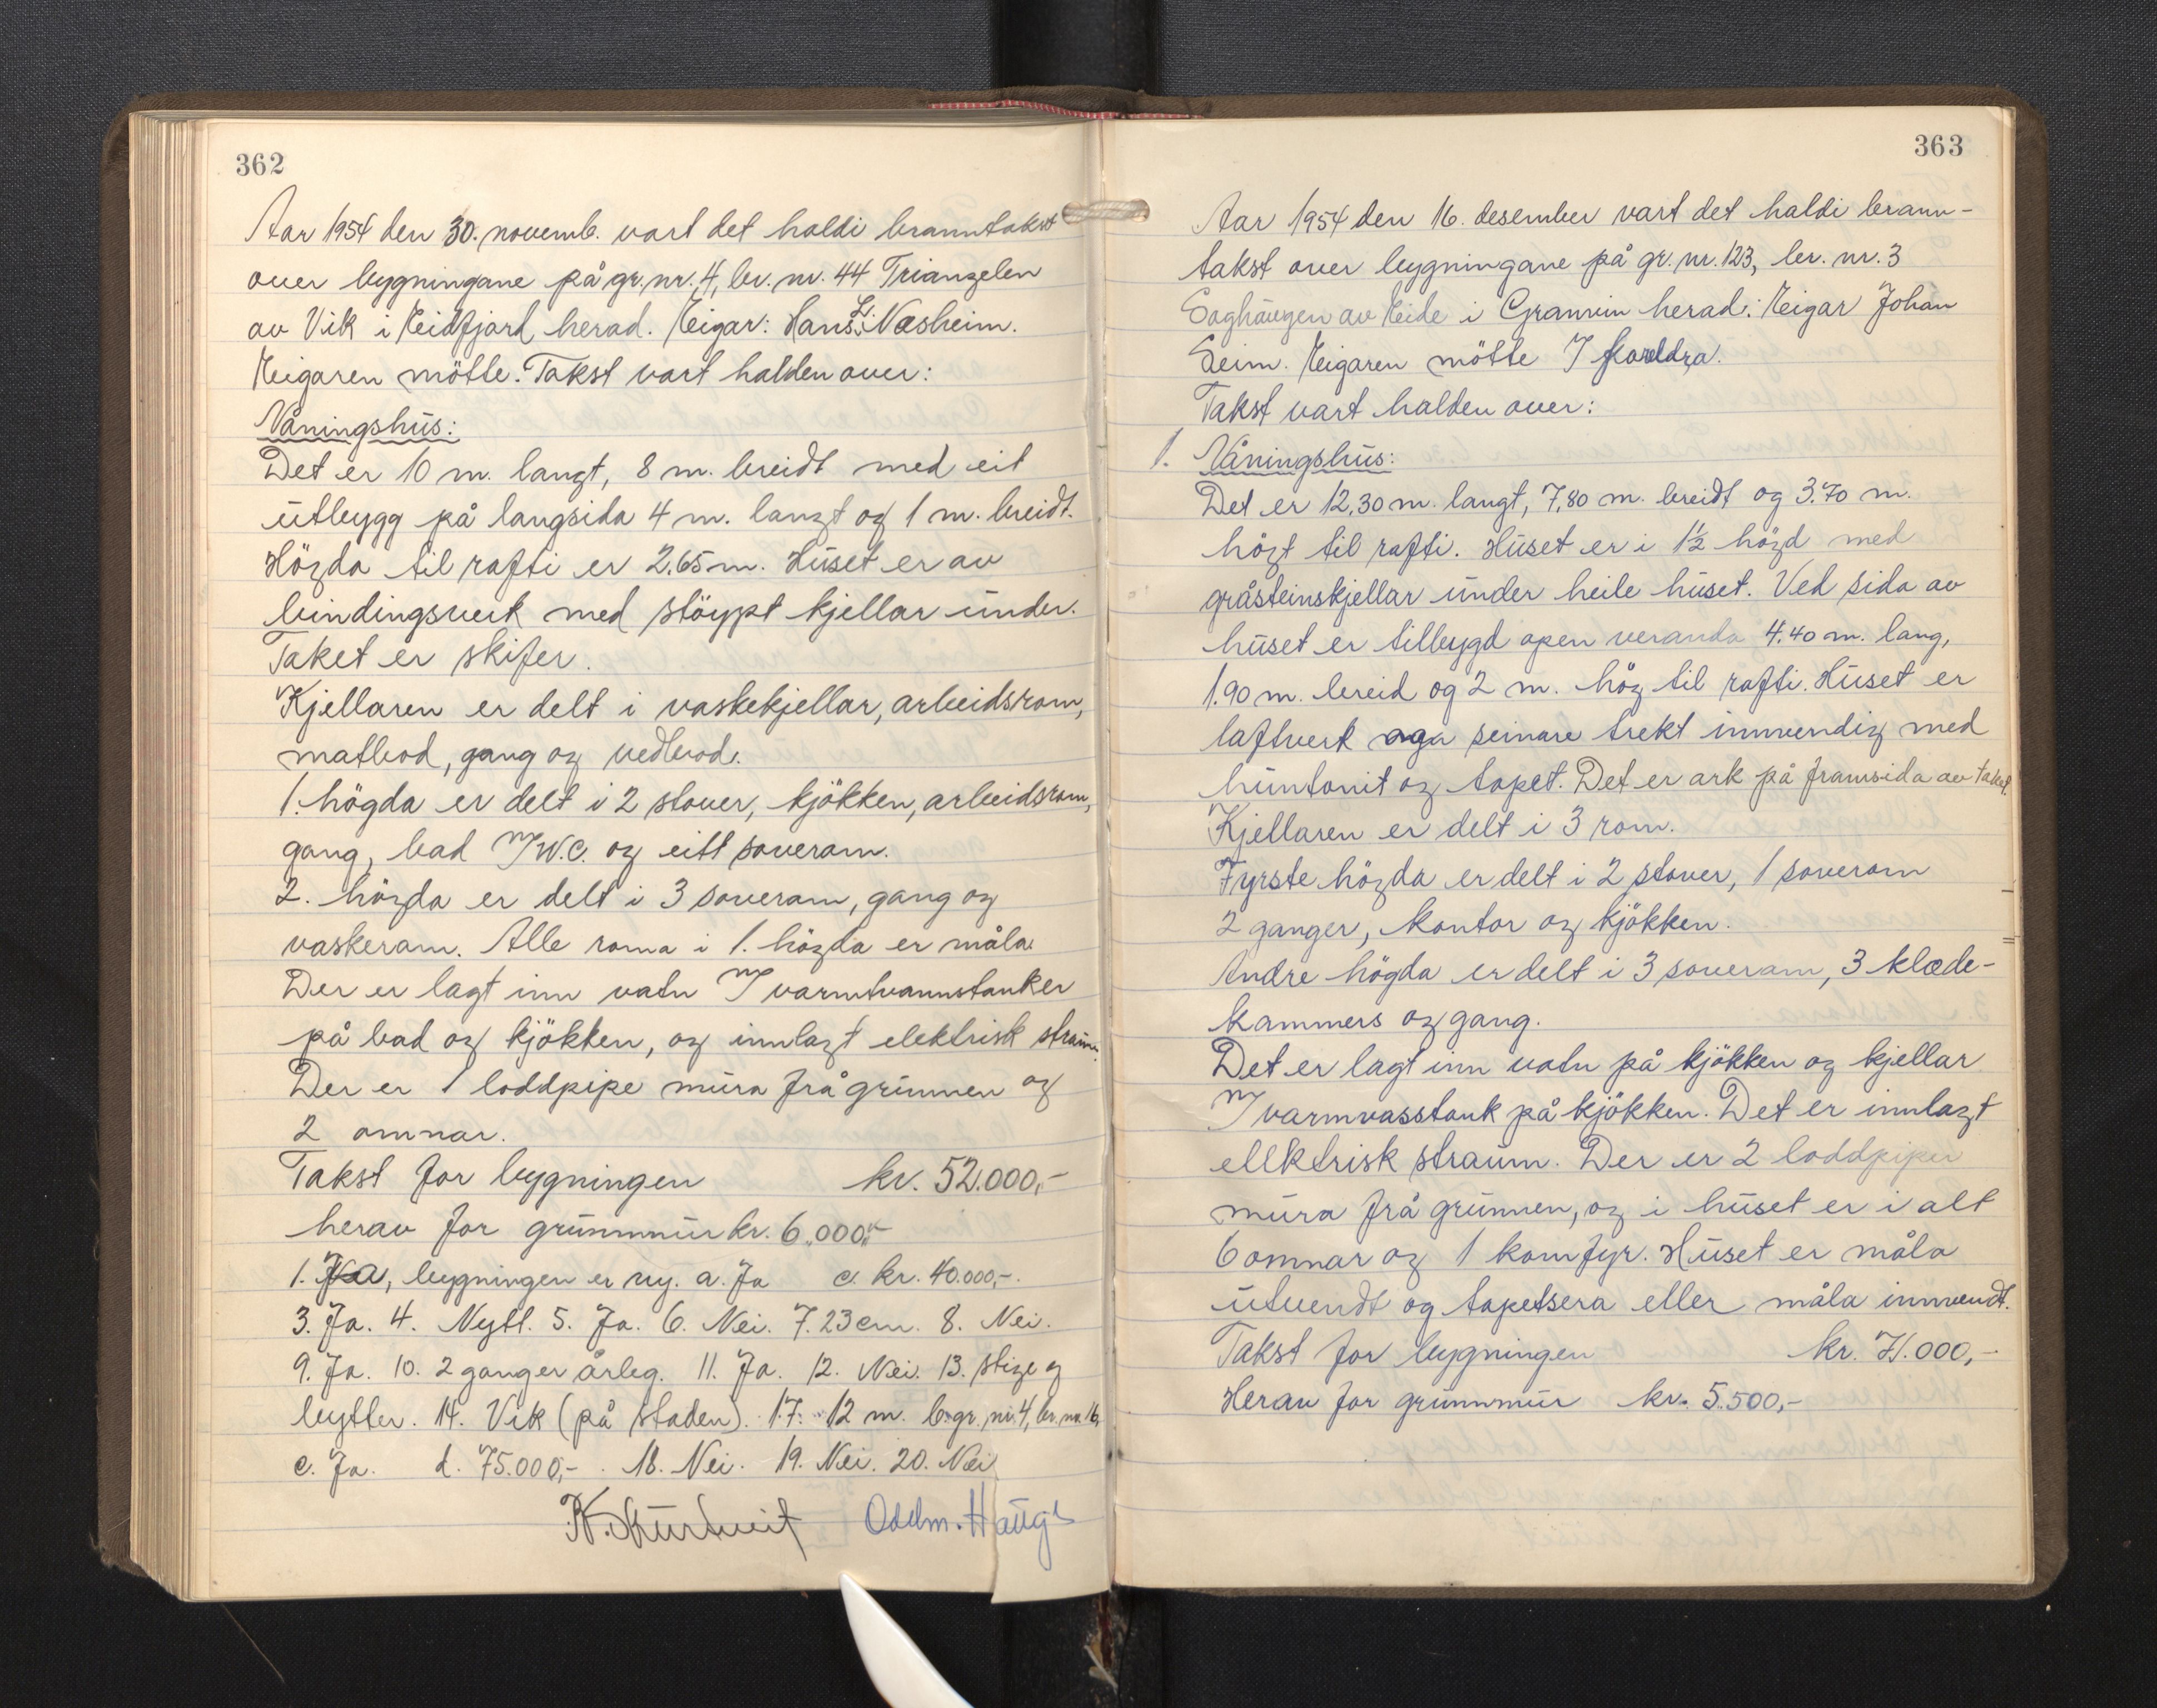 362
Aar 1954 den 30. novemb. vart det haldi branntakst
over bygningane på gr. nr. 4, br. nr. 44 Triangelen
av Vik i Eidfjord herad. Eigar: Hans L. Næsheim.
Eigaren mötte. Takst vart halden over:
Våningshus:
Det er 10 m. langt, 8 m. breidt med eit
utbygg på langsida 4 m. langt og 1 m. breidt.
Högda til rafti er 2.65 m. Huset er av
bindingsverk med stöypt kjellar under.
Taket er skifer.
Kjellaren er delt i vaskekjellar, arbeidsrom,
matbod, gang og vedbod.
1. högda er delt i 2 stover, kjökken, arbeidsrom,
gang, bad W.C. og eitt soverom.
2. högda er delt i 3 soverom, gang og
vaskerom. Alle roma i 1. högda er måla
Der er lagt inn vatn varmtvannstanker
på bad og kjökken, og innlagt elektrisk straum.
Der er 1 loddpipe mura frå grunnen og
2 omnar.
Takst for bygningen kr. 52.000,-
herav for grunnmur kr. 6.000,-
1. bygningen er ny. a. Ja c. kr. 40.000,-.
3. Ja. 4. Nytt. 5. Ja. 6. Nei. 7. 23 cm. 8. Nei.
9. Ja. 10. 2 ganger årleg. 11. Ja. 12. Nei. 13. stige og
bytter. 14. Vik (på staden). 17. 12 m. b. gr. nr. 4, br. nr. 16,
c. Ja. d. 75.000,- . 18. Nei. 19. Nei. 20. Nei
Oddm. Haug
363
Aar 1954 den 16. desember vart det haldi brann-
takst over bygningane på gr. nr. 123, br. nr. 3
Saghaugen av Eide i Granvin herad. Eigar Johan
Seim. Eigaren mötte foreldra.
Takst vart halden over:
1. Våningshus:
Det er 12,30 m. langt, 7,80 m. breidt og 3.70 m.
högt til rafti. Huset er i 1½ högd med
gråsteinskjellar under heile huset. Ved sida av
huset er tilbygd open veranda 4.40 m. lang,
1.90 m. breid og 2 m. hög til rafti. Huset er
laftverk og seinare trekt innvendig med
huntonit og tapet. Det er ark på framsida av taket.
Kjellaren er delt i 3 rom.
Fyrste högda er delt i 2 stover, 1 soverom
2 ganger, kontor og kjökken.
Andre högda er delt i 3 soverom, 3 klæde-
kammers og gang.
Det er lagt inn vatn på kjökken og kjellar
varmvasstank på kjökken. Det er innlagt
ellktrisk straum. Der er 2 loddpiper
mura frå grunnen, og i huset er i alt
6 omnar og 1 komfyr. Huset er måla
utvendt og tapetsera eller måla innvendt.
Takst for bygningen kr. 71.000,-
Herav for grunnmur kr. 5.500,-